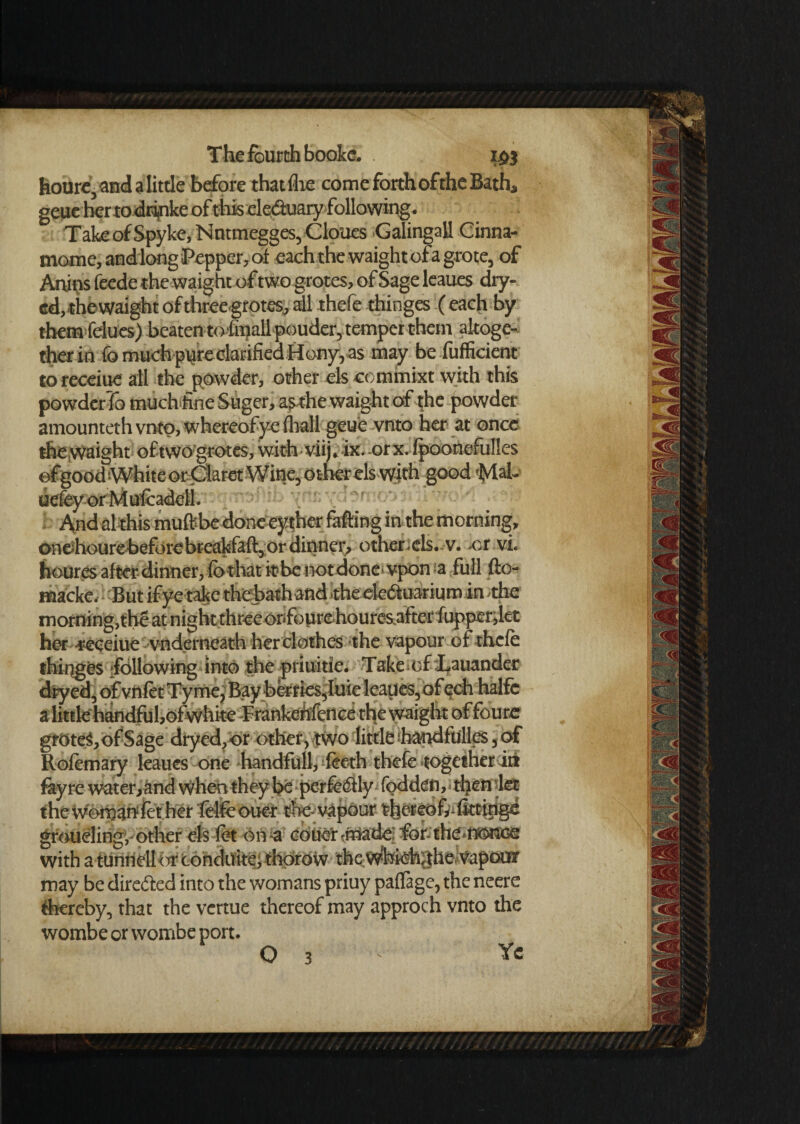 The fourth booke. 193
houre, and a little before that ſhe come forth of the Bath,
geue her to drinke of this electuary following.
Take of Spyke, Nutmegges, Cloues Galingall Cinna-
mome, and long Pepper, of each the waight of a grote, of
Anins ſeede the waight of two grotes, of Sage leaues dry-
ed, the waight of three grotes, all theſe thinges (each by
them ſelues) beaten to ſmall pouder, temper them altoge-
ther in ſo much pure clarified Hony, as may be ſufficient
to receiue all the powder, other els commixt with this
powder ſo much fine Suger, as the waight of the powder
amounteth vnto, whereof ye ſhall geue vnto her at once
the waight of two grotes, with viij. ix. or x. ſpoonefulles
of good White or Claret Wine, other els with good Mal-
ueſey or Muſcadell.
And al this muſt be done eyther faſting in the morning,
one houre before breakfaſt, or dinner, other els. v. or vi.
houres after dinner, ſo that it be not done vpon a full ſto-
macke. But if ye take the bath and the electuarium in the
morning, the at night three or foure houres after ſupper, let
her receiue vnderneath her clothes the vapour of theſe
thinges following into the priuitie. Take of Lauander
dryed, of vnſet Tyme, Bay berries, Iuie leaues, of ech halfe
a little handful, of white Frankenſence the waight of foure
grotes, of Sage dryed, or other, two little handfulles, of
Roſemary leaues one handfull, ſeeth theſe together in
fayre water, and when they be perfectly ſodden, then let
the woman ſet her ſelfe ouer the vapour thereof, ſittinge
groueling, other els ſet on a couer made for the nonce
with a tunnell or conduite, thorow the which, the vapour
may be directed into the womans priuy paſſage, the neere
thereby, that the vertue thereof may approch vnto the
wombe or wombe port.
O 3 Ye